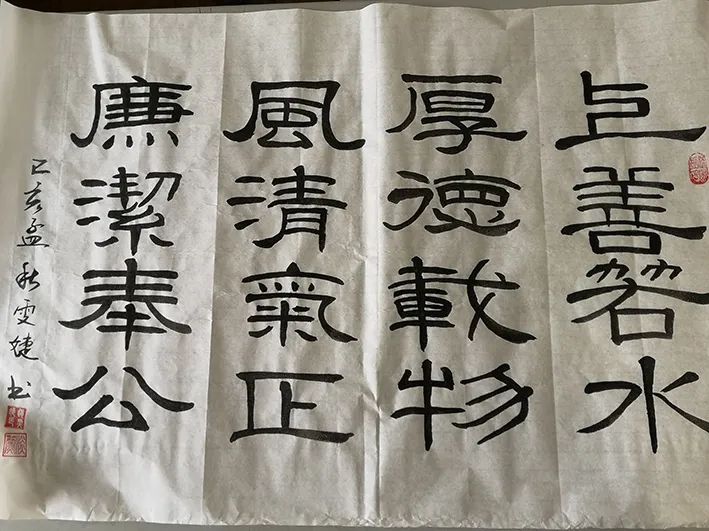 上善若水
厚德載物
風清氣正
廉潔奉公
己亥孟秋雯婕书